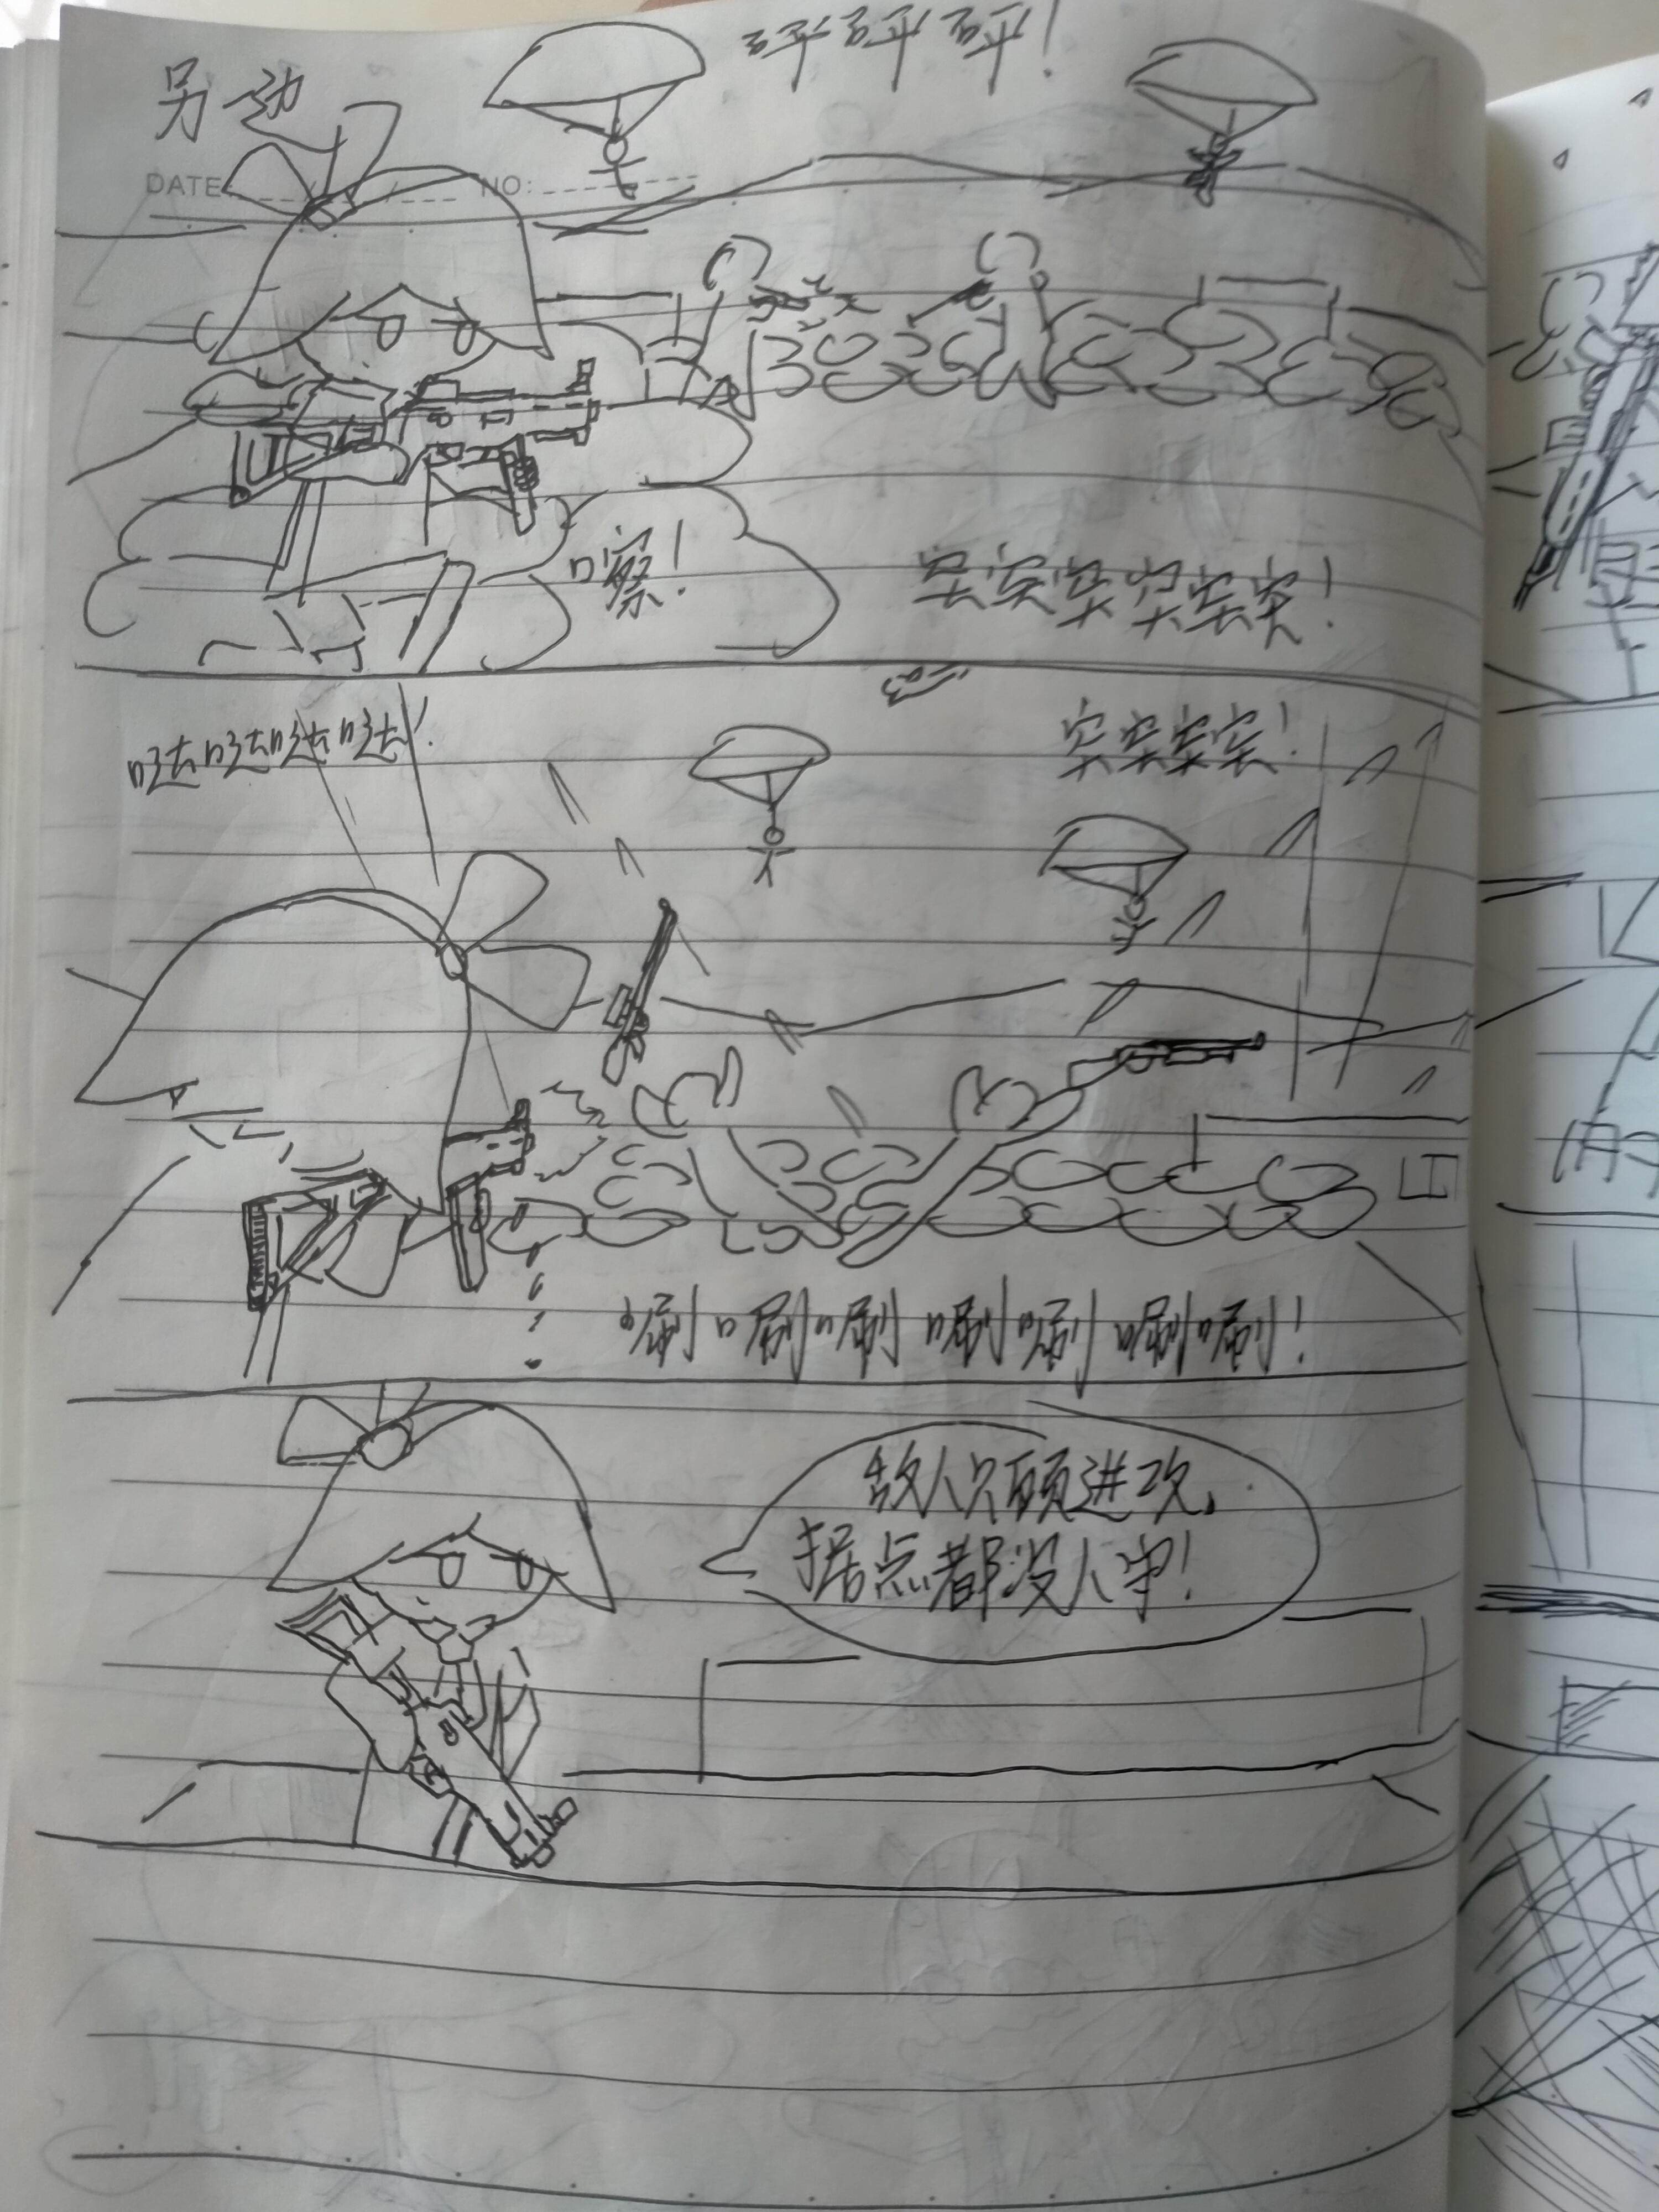 另一边
砰砰砰!
DATE: NO:
嚓!
突突突突突突!
哒哒哒哒!
突突突突!
唰唰唰唰唰唰唰!
敌人只顾进攻,
据点都没人守!